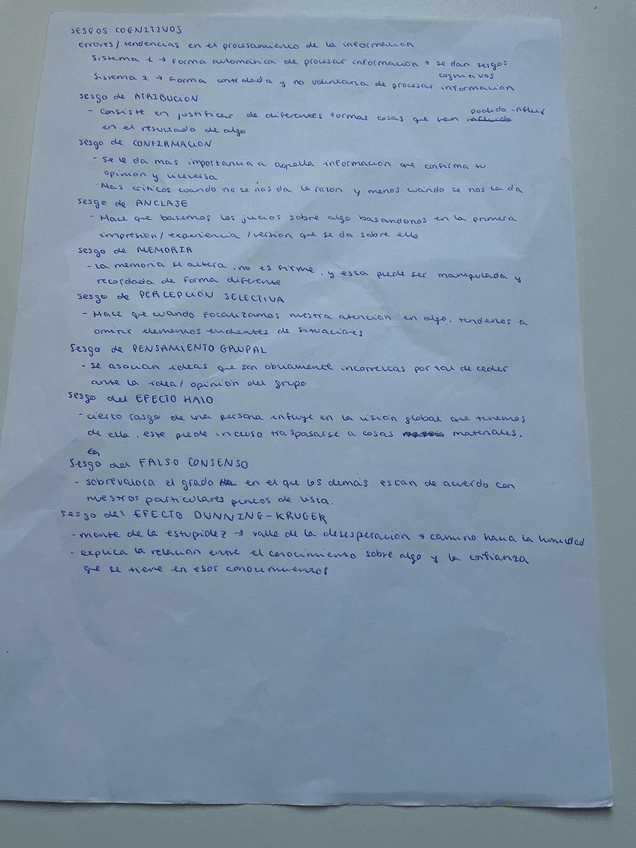 SESGOS COGNITIVOS
errores/tendencias en el procesamiento de la informacion
Sistema 1 → Forma automática de procesar información → se dan sesgos cognitivos
Sistema 2 → Forma controlada y no voluntaria de procesar informacion
Sesgo de ATRIBUCION
- Consiste en justificar de diferentes formas cosas que han podido influir
en el resultado de algo
Sesgo de CONFIRMACION
- Se le da mas importancia a aquella informacion que confirma tu
opinión y viceversa
· Mas criticos cuando no se nos da la razon y menos cuando se nos la da
Sesgo de ANCLAJE
- Hace que basemos los juicios sobre algo basandonos en la primera
impresión/experiencia/version que se da sobre ello
Sesgo de MEMORIA
- La memoria se altera, no es firme, y esta puede ser manipulada y
recordada de forma diferente
Sesgo de PERCEPCION SELECTIVA
- Hace que cuando focalizamos nuestra atencion en algo, tendemos a
omitir elementos evidentes de situaciones
Sesgo de PENSAMIENTO GRUPAL
- se asocian ideas que son obviamente incorrectas por tal de ceder
ante la idea/opinión del grupo
Sesgo del EFECTO HALO
- cierto rasgo de una persona influye en la visión global que tenemos
de ella, este puede incluso traspasarse a cosas materiales.
En
Sesgo del FALSO CONSENSO
- sobrevalora el grado en el que los demás estan de acuerdo con
nuestros particulares puntos de vista.
Sesgo del EFECTO DUNNING-KRUGER
- monte de la estupidez → valle de la desesperación → camino hacia la humildad
- explica la relacion entre el conocimiento sobre algo y la confianza
que se tiene en esos conocimientos